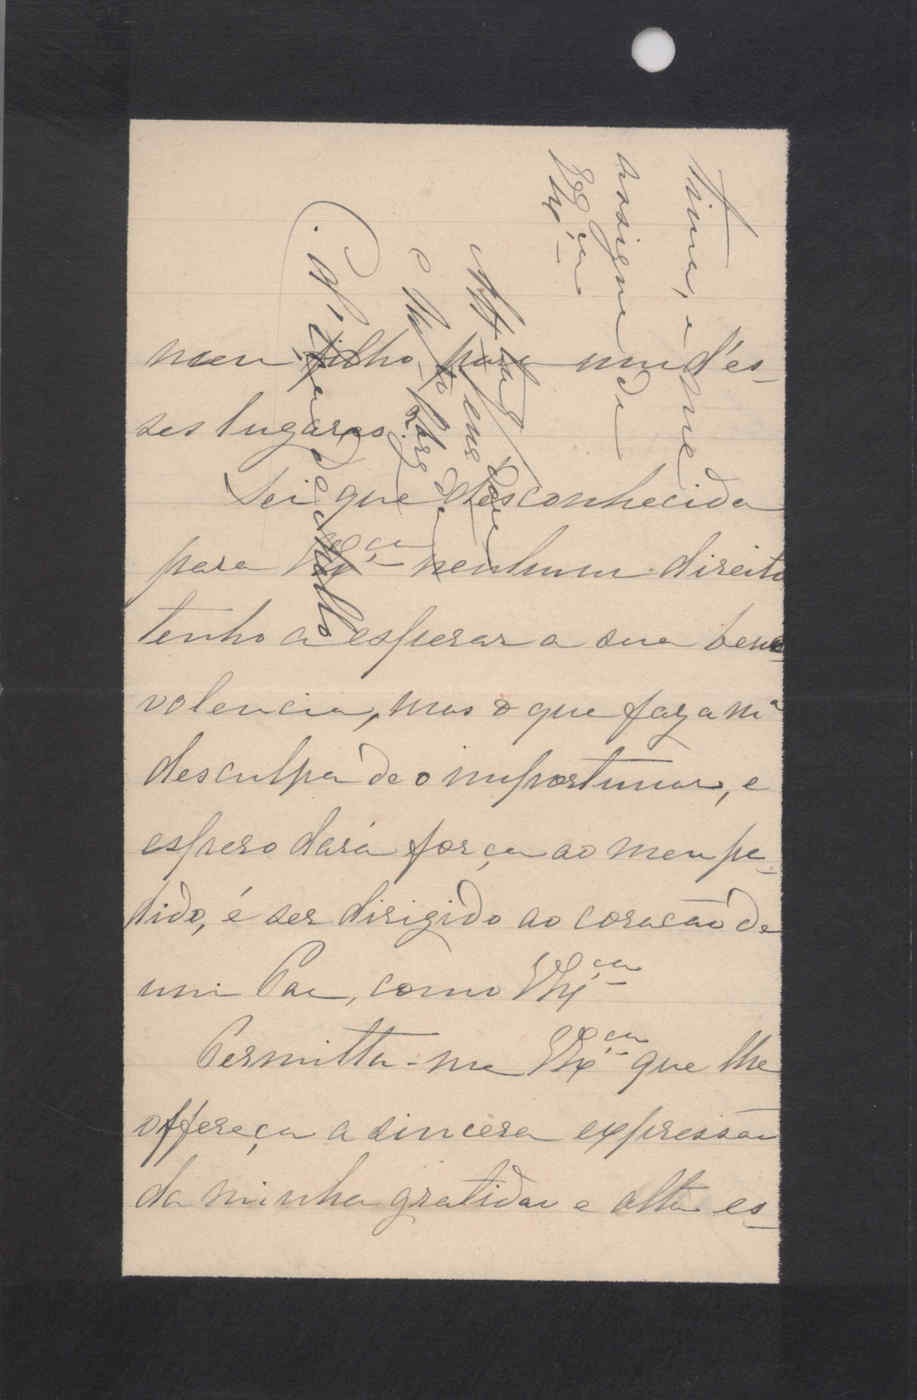 meu filho, para um d'es-
ses lugares.
Sei que desconhecida
para VEx.ᶜⁱᵃ nenhum direito
tenho a esperar a sua bene-
volencia, mas o que faz a mª
desculpa de o importunar, e
espero dará força ao meu pe-
dido, é ser dirigido ao coração de
um Pae, como VEx.ᶜⁱᵃ
Permitta-me VEx.ᶜⁱᵃ que lhe
offereça a sincera expressão
da minha gratidão e alta es-
tima, e me
assigne de
VEx.ᶜⁱᵃ
Att.
e
de Mello